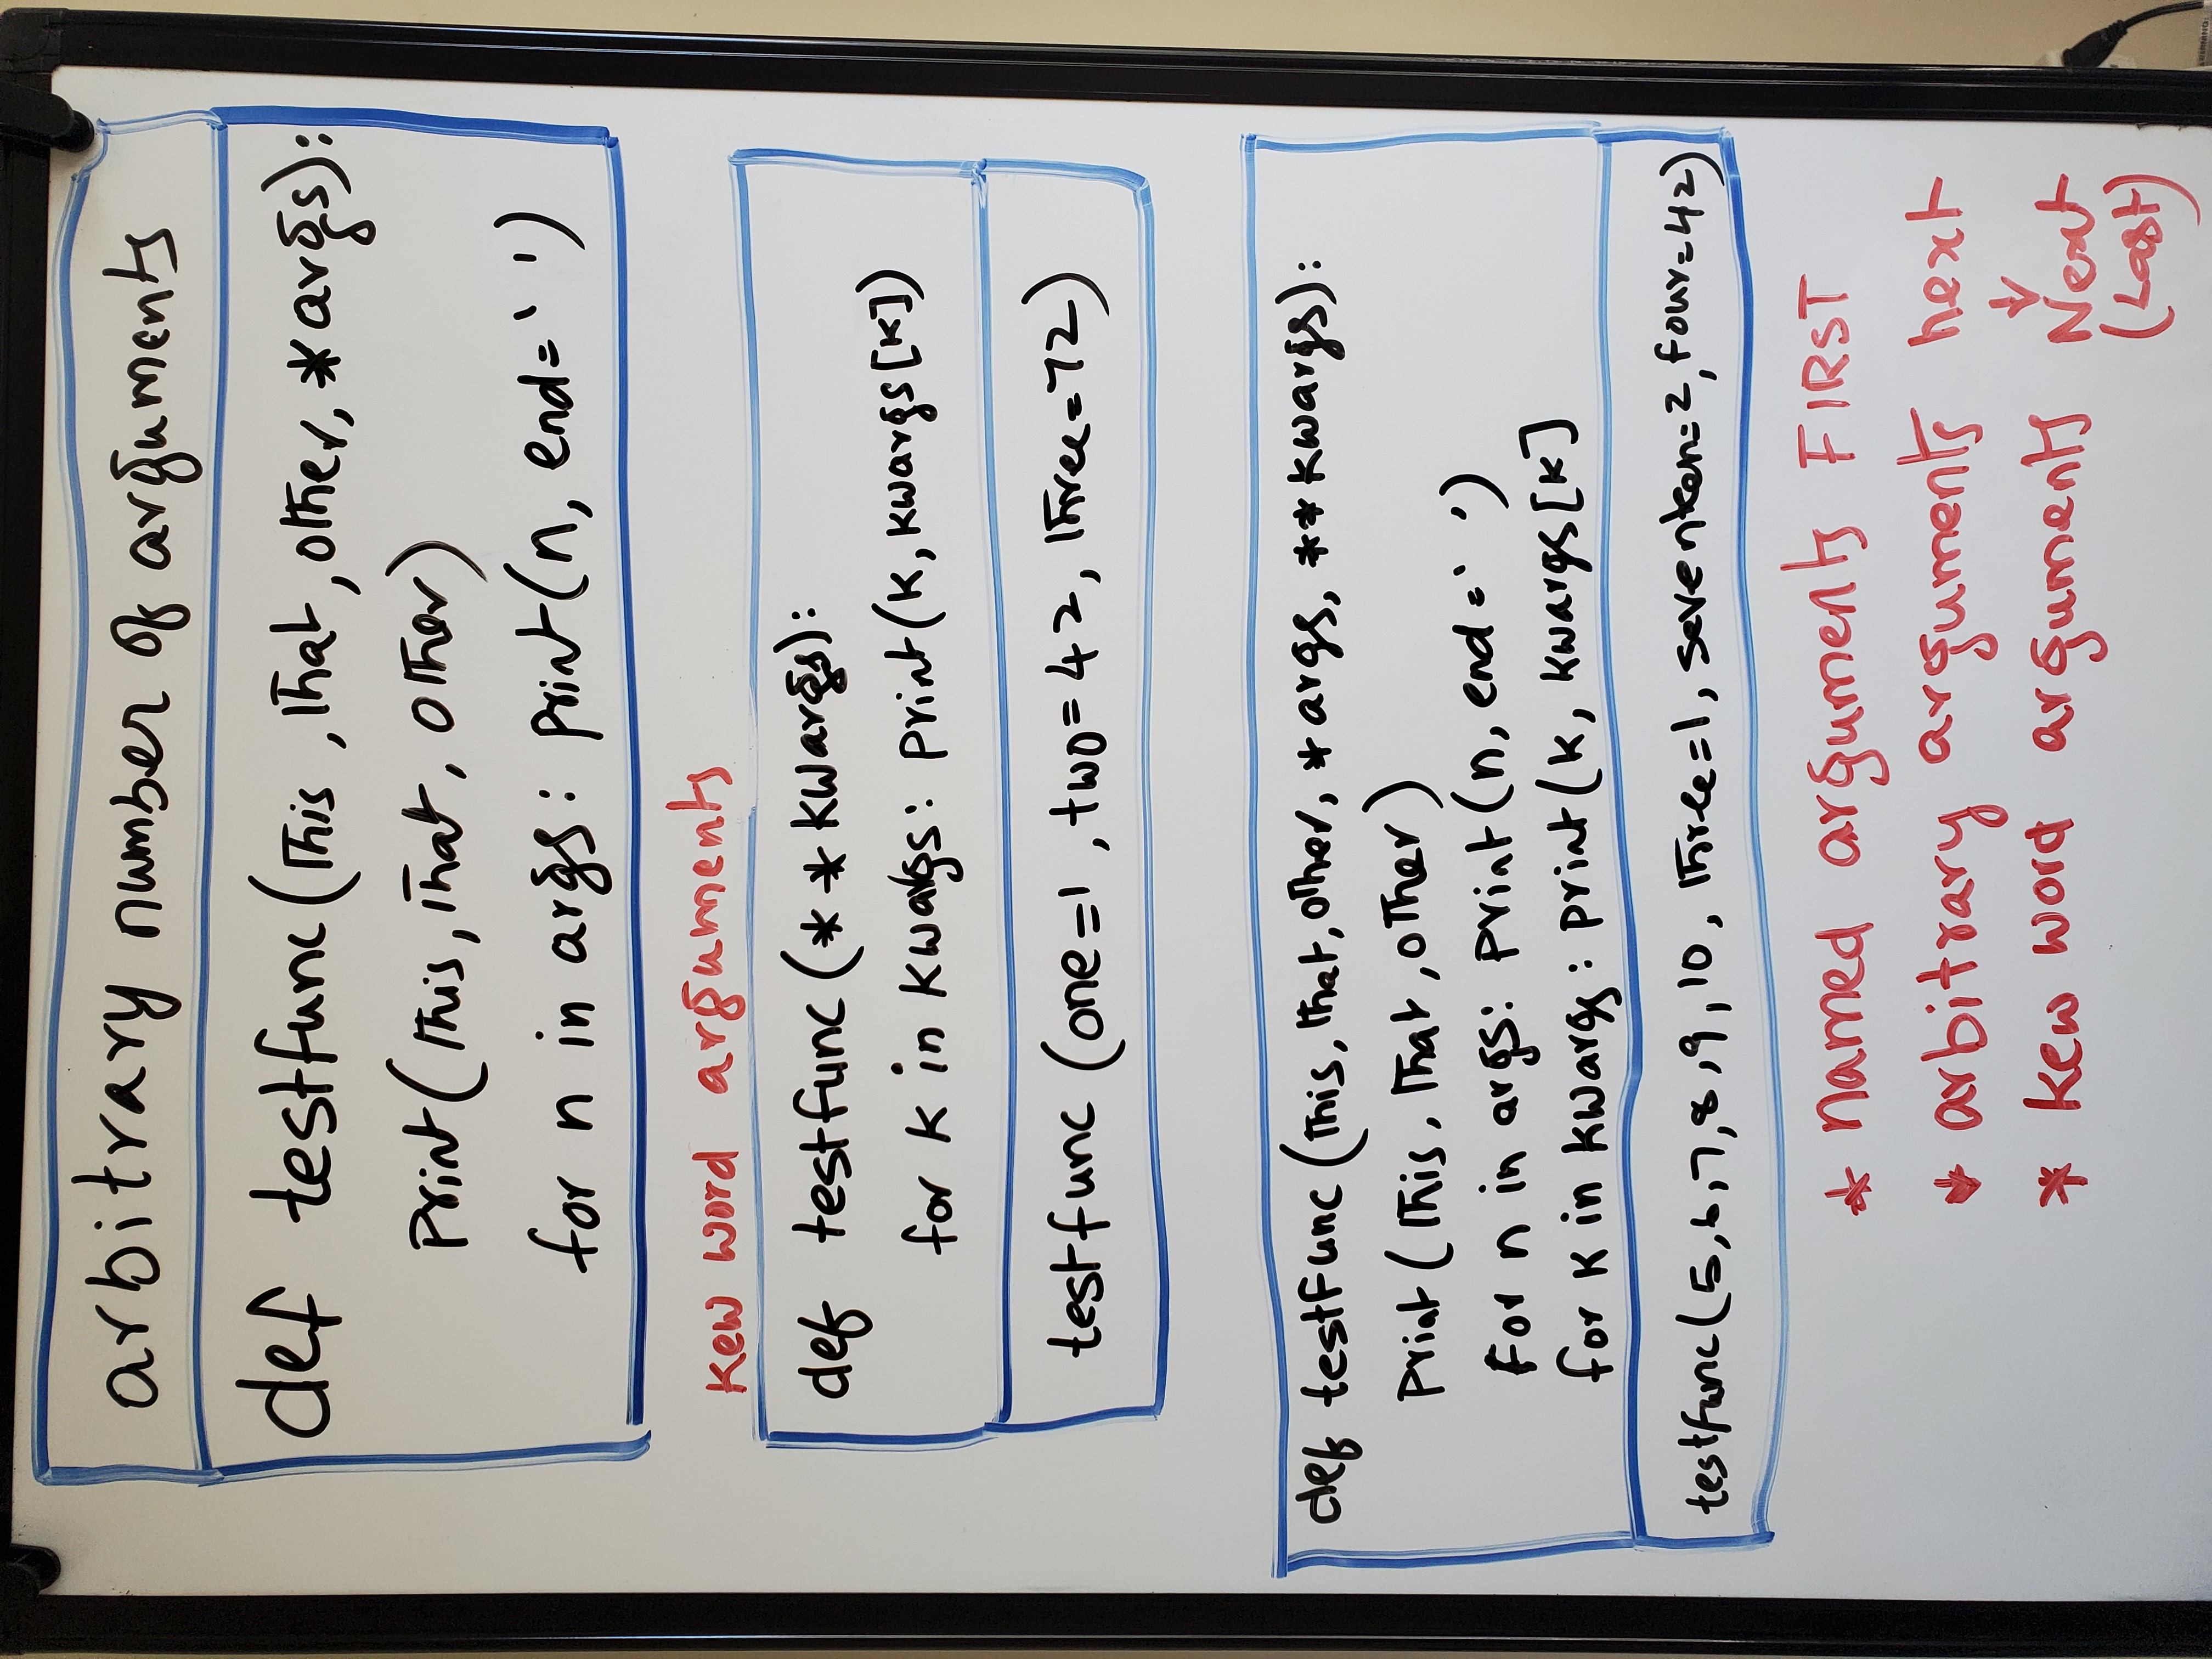 arbitrary number of arguments
def testfunc(This, That, other, *args):
Print(This, That, other)
for n in args: print(n, end=' ')
Kew word arguments
def testfunc(**kwargs):
for k in kwargs: print(k, kwargs[k])
testfunc (one=1, two=42, Three=72)
def testfunc(This, That, other, *args, **kwargs):
Print(This, That, other)
for n in args: print(n, end=' ')
for k in kwargs: print(k, kwargs[k]
testfunc(5,6,7,8,9,10, Three=1, seventeen=2, four=42)
* named arguments FIRST
* arbitrary arguments next
↓
* kew word arguments Next
(Last)